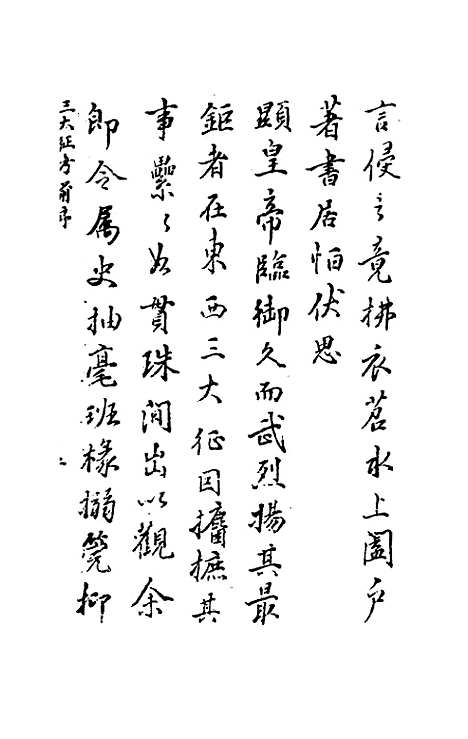 言侵之竟拂衣苕水上闔戶
著書居恒伏思
顯皇帝臨御久而武烈揚其最
鉅者在東西三大征因攟摭其
事纍〻如貫珠間出以觀余余
即令属史抽毫班椽搦筦抑
三大征考前序
二